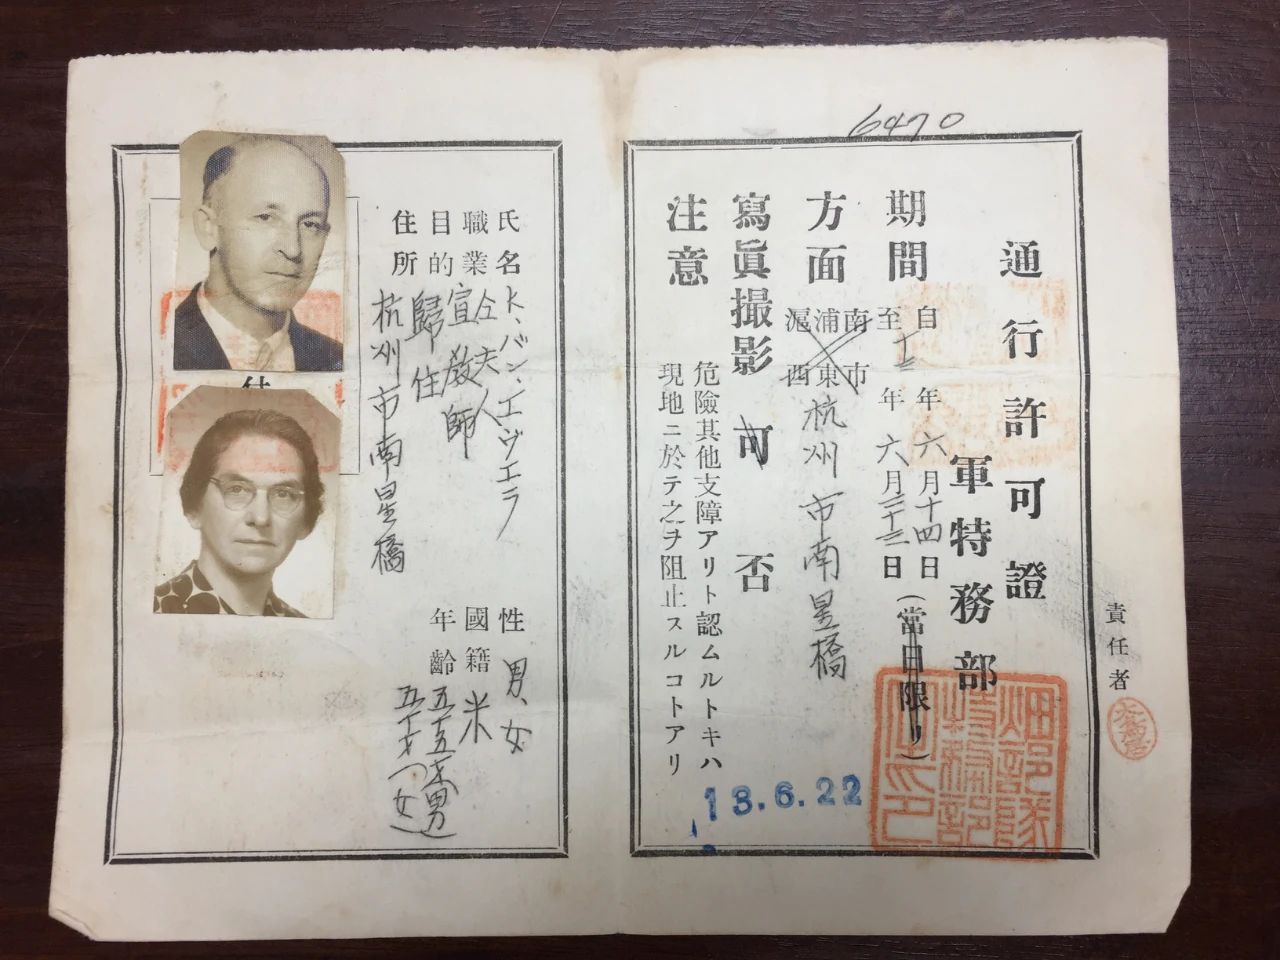 6470
通行許可證
軍特務部
期間 自 年六月十四日
至十三年六月二十三日(當日限リ)
方面 南市
浦東
滬西
杭州市南星橋
寫眞撮影 可 否
注意 危險其他支障アリト認ムルトキハ
現地ニ於テ之ヲ阻止スルコトアリ
責任者
畑部隊
特務部
之印
13.6.22
氏名 K、バン、エヴエラ
仝夫人
性 男、女
職業 宣教師
國籍 米
目的 歸住
年齡 五十五才(男)
五十才(女)
住所 杭州市南星橋